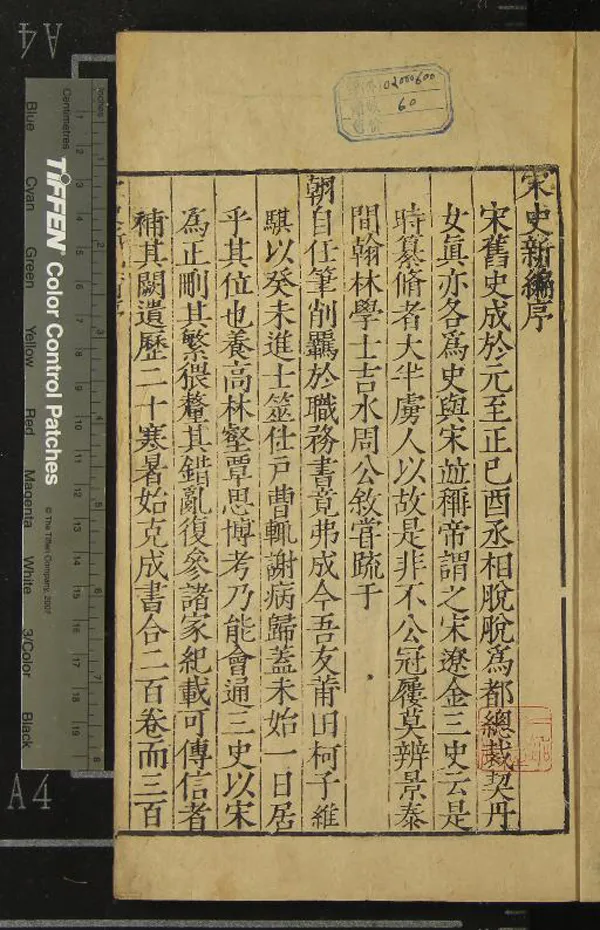 宋史新編序
宋舊史成於元至正己酉丞相脫脫為都總裁契丹
女真亦各為史與宋竝稱帝謂之宋遼金三史云是
時纂脩者大半虜人以故是非不公冠屨莫辨景泰
間翰林學士吉水周公敘嘗疏于
朝自任筆削羈於職務書竟弗成今吾友莆田柯子維
騏以癸未進士筮仕戶曹輒謝病歸蓋未始一日居
乎其位也養高林壑覃思博考乃能會通三史以宋
為正刪其繁猥釐其錯亂復參諸家紀載可傳信者
補其闕遺歷二十寒暑始克成書合二百卷而三百
02000600
60
A4
A4
Inches
Centimetres
TIFFEN Color Control Patches
© The Tiffen Company, 2007
Blue
Cyan
Green
Yellow
Red
Magenta
White
3/Color
Black